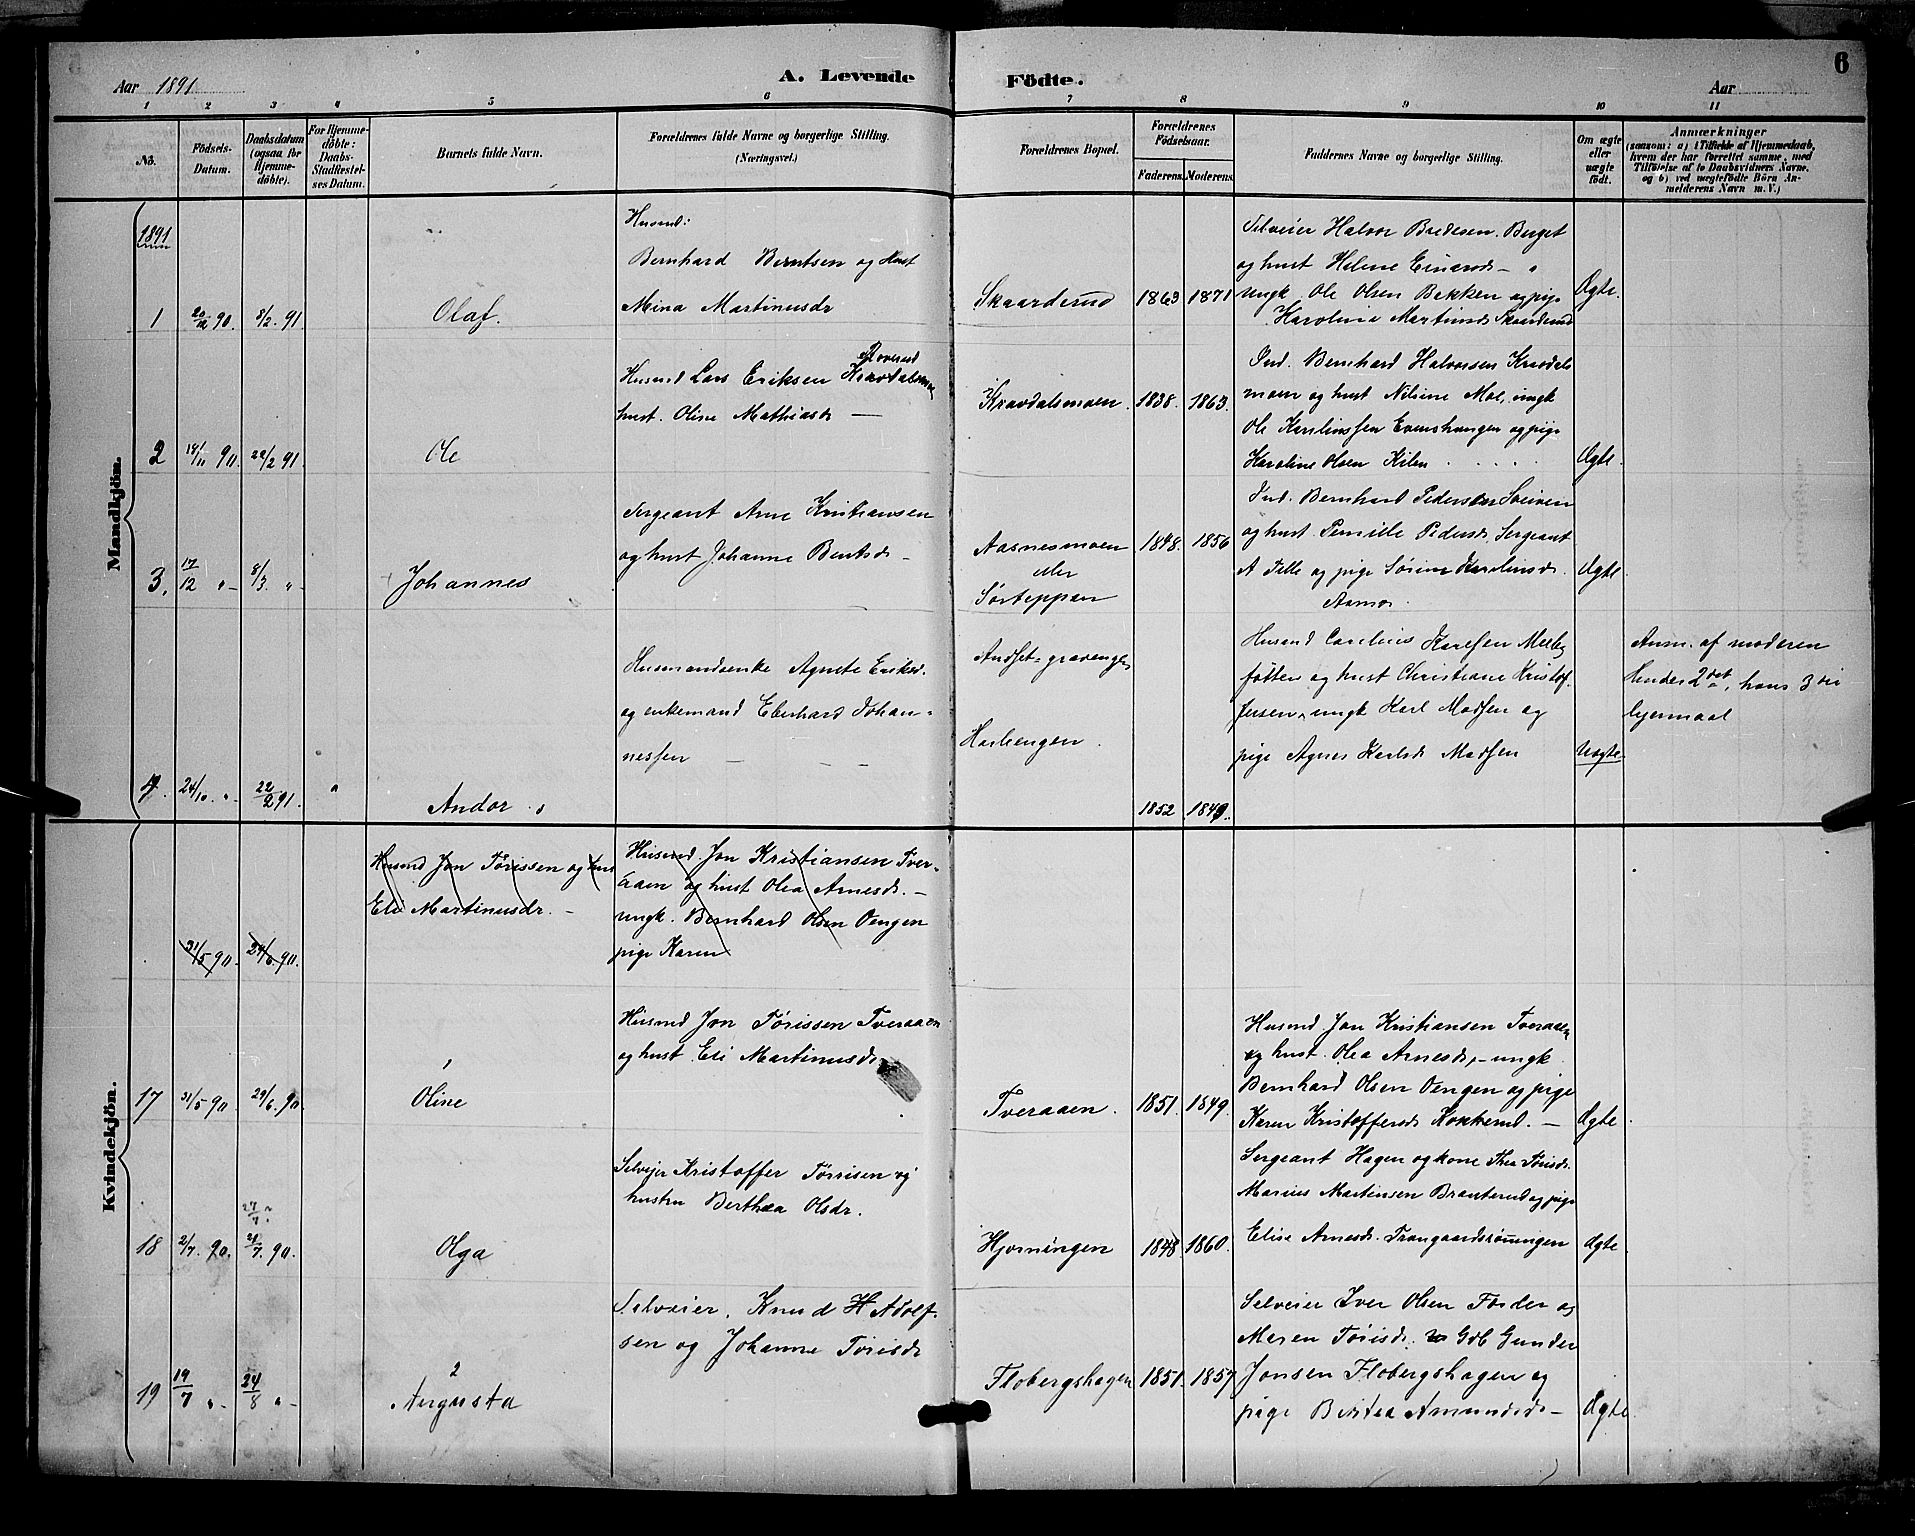 6
Aar 1891
A. Levende
Födte.
Aar
1 2 3 4 5 6 7 8 9 10 11
No.
Födsels-
Datum.
Daabsdatum
(ogsaa for
Hjemme-
döbte).
For Hjemme-
döbte:
Daabs-
Stadfæstel-
ses Datum.
Barnets fulde Navn.
Forældrenes fulde Navne og borgerlige Stilling.
(Næringsvei.)
Forældrenes Bopæl.
Forældrenes
Födselsaar.
Faderens. Moderens.
Faddernes Navne og borgerlige Stilling.
Om ægte
eller
uægte
födt.
Anmærkninger
(saasom: a) i Tilfælde af Hjemmedaab,
hvem der har forrettet samme, med
Tilföielse af to Daabsvidners Navne,
og b) ved uægtefödte Börn An-
melderens Navn m. V.)
Mandkjön.
1891
1
20/12 90.
8/2. 91
Olaf.
Husmd:
Bernhard Berntsen og Hust
Mina Martinusdr
Skaarderud
1863 1871
Selveier Halvor Bredesen. Berget
og hust Helene Einarsd - "
Ungk Ole Olsen Bakken og pige
Karoline Martinsd Skaarderud
Ægte.
2
22/2 91
Ole
Husmd Lars Eriksen
hust. Oline Mathiasdr —
Kravdalsmoen.
1838. 1863.
Ind. Bernhard Halvorsen Kravdals
moen og hust Nilsine Moe, ungk
Ole Karelinssen Evenshaugen og pige
Karoline Olsen Kilen
Ægte.
3.
17/12 " -
8/3. " -
Johannes
Sergeant Arne Kristiansen
og hust Johanne Berntsd -
Aasnesmoen
eller
Sörteppen
1848. 1856
Ind. Bernhard Pedersen Sveiven
og hust Pernille Pedersd. Sergeant
A Telle og pige Sörine Karelinsd.
Aasnes.
Ægte
4.
24/10. " -
22/2 91.
"
Andor
Husmandsenke Agnete Eriksd.
og enkemand Eberhard Johan-
nessen — —
Hasliengen.
1852 1849.
Husmd Carelius Karlsen Melby
føtten og hust Christiane Kristof-
fersen, ungk Karl Madsen og
pige Agnes Karlsd Madsen
Uægte
Anm. af moderen
hendes 2det, hans 3die
leiermaal
Kvindekjön.
31/5 90.
24/6. 90.
Husmd Jon Törissen og hust
Eli Martinusdr. -
Husmd. Jon Kristiansen Tver-
aaen og hust Olea Arnesd. -
ungk. Bernhard Olsen Oengen
pige Karen
17
31/5 90.
29/6. 90
Oline
Husmd Jon Törissen Tveraaen
og hust. Eli Martinusdr
Tveraaen.
1851. 1849.
Husmd Jon Kristiansen Tveraaen
og hust. Olea Arnesdr, - ungk
Bernhard Olsen Oengen og pige
Karen Kristoffersd Kokkerud. -
Ægte
18
2/7. 90.
27/7
90.
Olga
Selveier Kristoffer Törrisen og
hustru Berthea Olsdr.
Hjorningen
1848 1860.
Sergeant Hagen og kone Thea Törisd.
Marius Martinsen Branterud og pige
Elise Arnesd. Trangaardsrönningen
Ægte
19
19/7 " -
24/8 " -
2
Augusta
Selveier. Knud H Adolf-
sen og Johanne Torisdr
Flobergshagen
1851. 1857
Selveier Iver Olsen Förder og
Maren Törisdr. Gdb Gunder
Jonsen Flobergshagen og
pige Bertea Amundsd -
Ægte